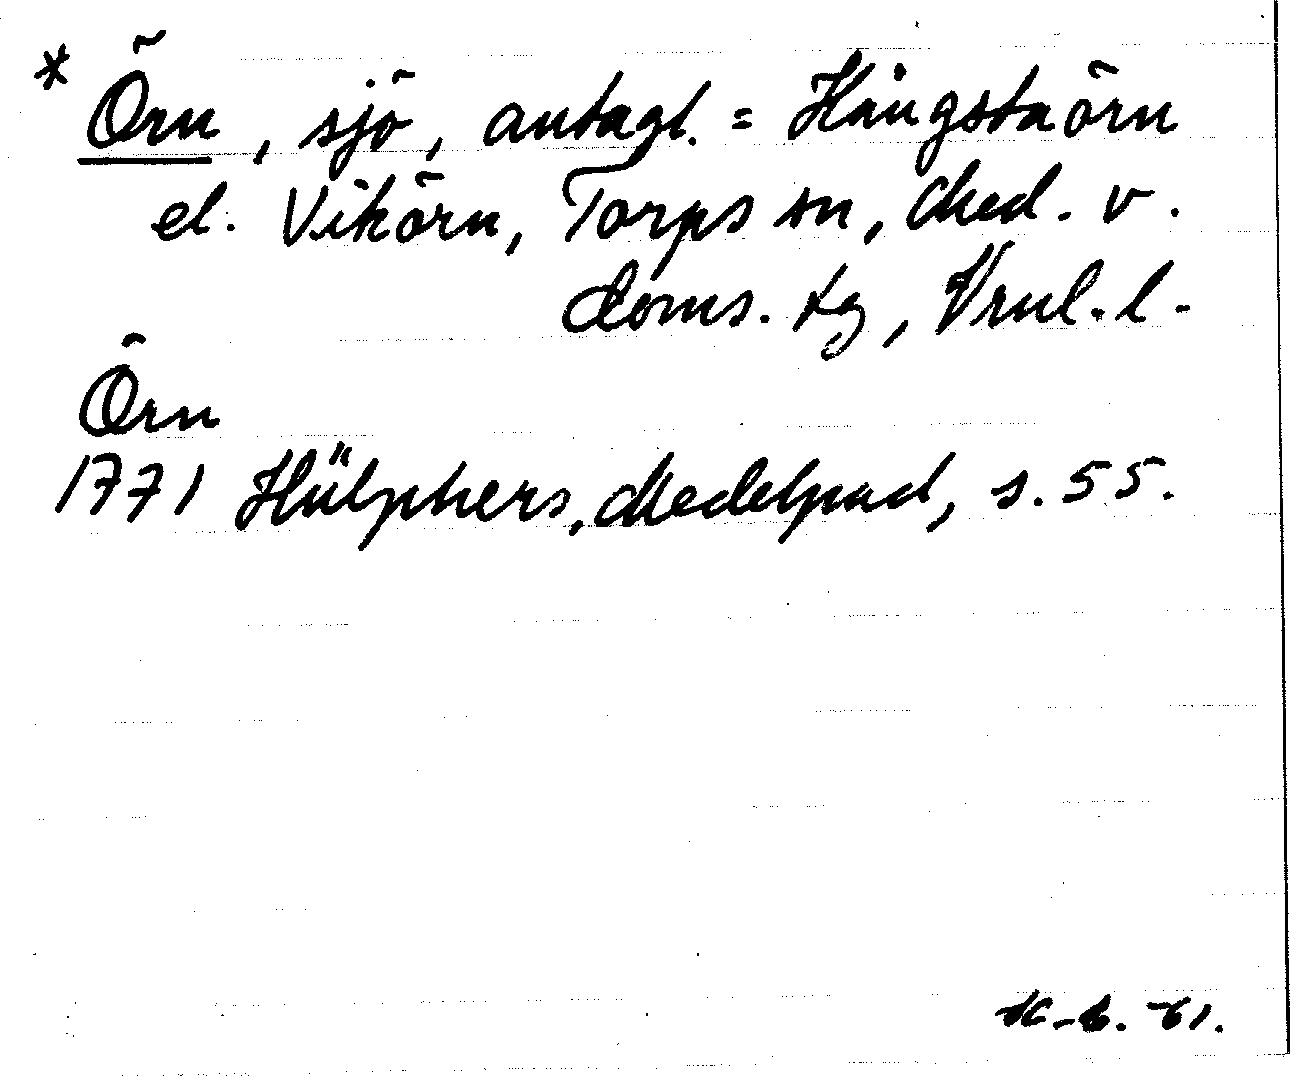 * Örn, sjö, antagl. = Hångstaörn
el. Vikörn, Torps sn, Med. v.
doms. tg, Vrnl. l.
Örn
1771 Hülphers, Medelpad, s. 55.